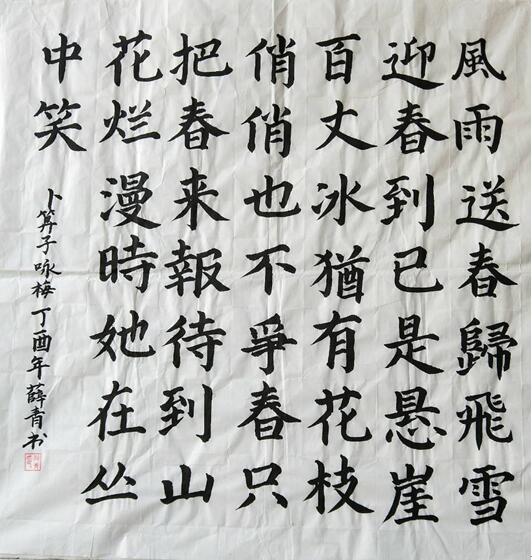 風雨送春歸飛雪
迎春到已是悬崖
百丈冰猶有花枝
俏俏也不爭春只
把春来報待到山
花烂漫時她在丛
中笑
卜筭子咏梅丁酉年薛青书